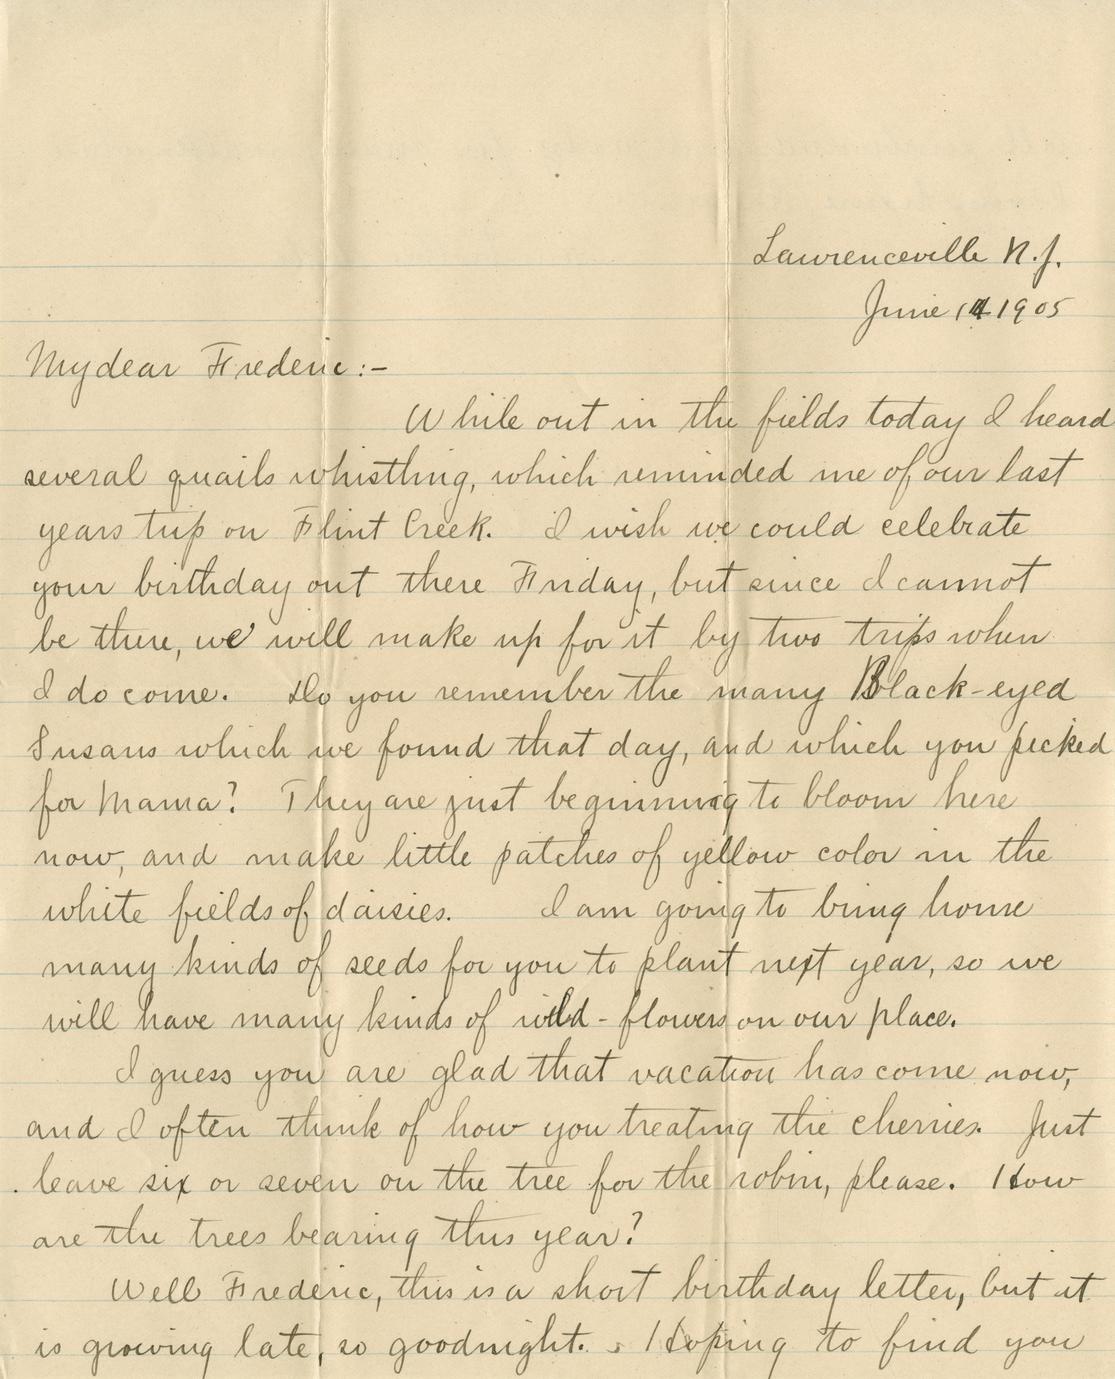 Lawrenceville N.J.
June 14 1905
My dear Frederic:-
While out in the fields today I heard
several quails whistling, which reminded me of our last
years trip on Flint Creek. I wish we could celebrate
your birthday out there Friday, but since I cannot
be there, we will make up for it by two trips when
I do come. Do you remember the many Black-eyed
Susans which we found that day, and which you picked
for Mama? They are just beginning to bloom here
now, and make little patches of yellow color in the
white fields of daisies. I am going to bring home
many kinds of seeds for you to plant next year, so we
will have many kinds of wild-flowers on our place.
I guess you are glad that vacation has come now,
and I often think of how you treating the cherries. Just
leave six or seven on the tree for the robin, please. How
are the trees bearing this year?
Well Frederic, this is a short birthday letter, but it
is growing late, so goodnight. Hoping to find you